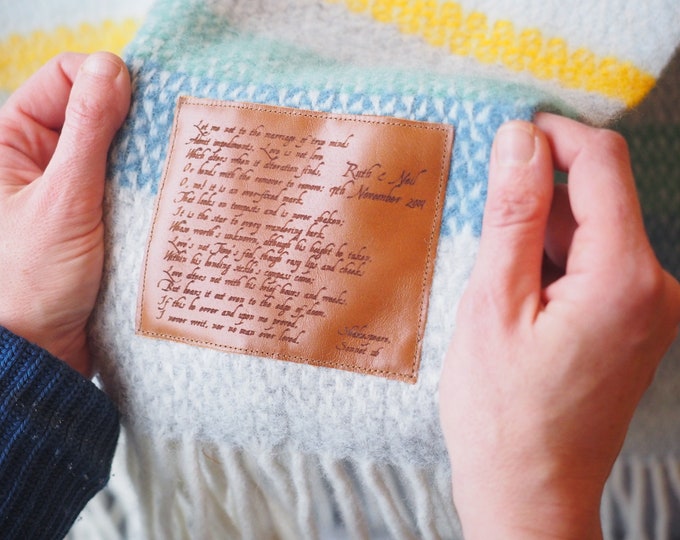 Let me not to the marriage of true minds
Admit impediments. Love is not love
Which alters when it alteration finds,
Or bends with the remover to remove:
O no! it is an ever-fixed mark,
That looks on tempests and is never shaken;
It is the star to every wandering bark,
Whose worth's unknown, although his height be taken.
Love's not Time's fool, though rosy lips and cheeks
Within his bending sickle's compass come;
Love alters not with his brief hours and weeks,
But bears it out even to the edge of doom.
If this be error and upon me proved,
I never writ, nor no man ever loved.
Ruth & Neil
November 2001
Shakespeare,
Sonnet